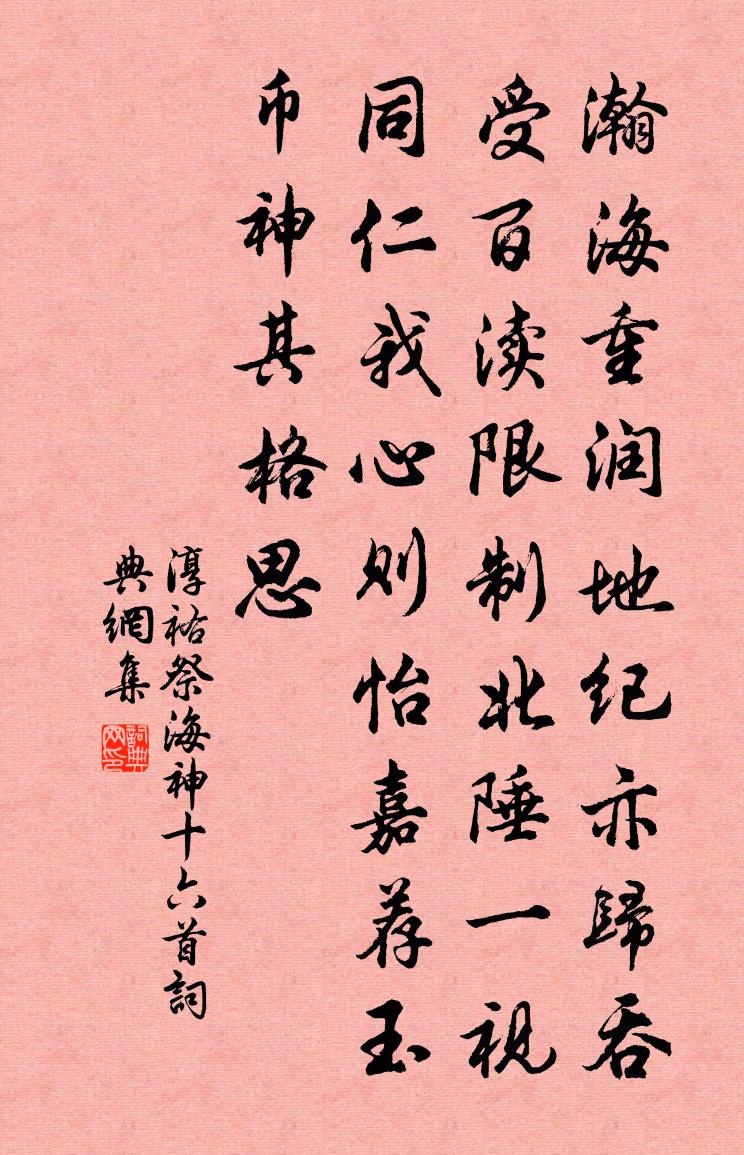 瀚海重润地纪亦歸吞
受百渎限制北陲一视
同仁我心则怡嘉荐玉
币神其格思
淳祐祭海神十六首詞
典網集
詞典网印